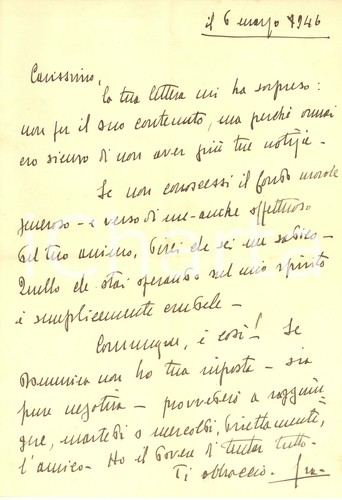 il 6 marzo 1946
Carissimo,
la tua lettera mi ha sorpreso:
non per il suo contenuto, ma perché ormai
ero sicuro di non aver più tue notizie -
Se non conoscessi il fondo morale
generoso - e verso di me - anche affettuoso
del tuo animo, direi che sei un sadico -
Quello che stai operando sul mio spirito
è semplicemente crudele -
Comunque, è così! Se
Domenica non ho tua risposta - sia
pure negativa - provvederò a raggiun
gere, martedì o mercoldì, direttamente,
l'amico - Ho il dovere di tentar tutto -
Ti abbraccio.